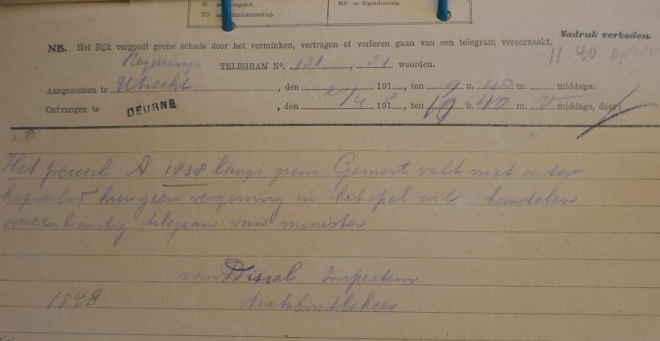 NB. Het Rijk vergoedt geene schade door het verminken, vertragen of verloren gaan van een telegram veroorzaakt.
Nadruk verboden.
Regerings TELEGRAM No. 131, 31 woorden.
Aangenomen te Utrecht, den 191, ten 9 u. 40 m. middags.
Ontvangen te DEURNE, den 191, ten u. 40 m. v middags, door:
Het perceel A 1838 langs grens Gemert valt niet onder
hier geen vergunning in wil handelen
overeenkomstig telegram van minister
van Dissel Inspecteur
1848 Staatsboschbeheer